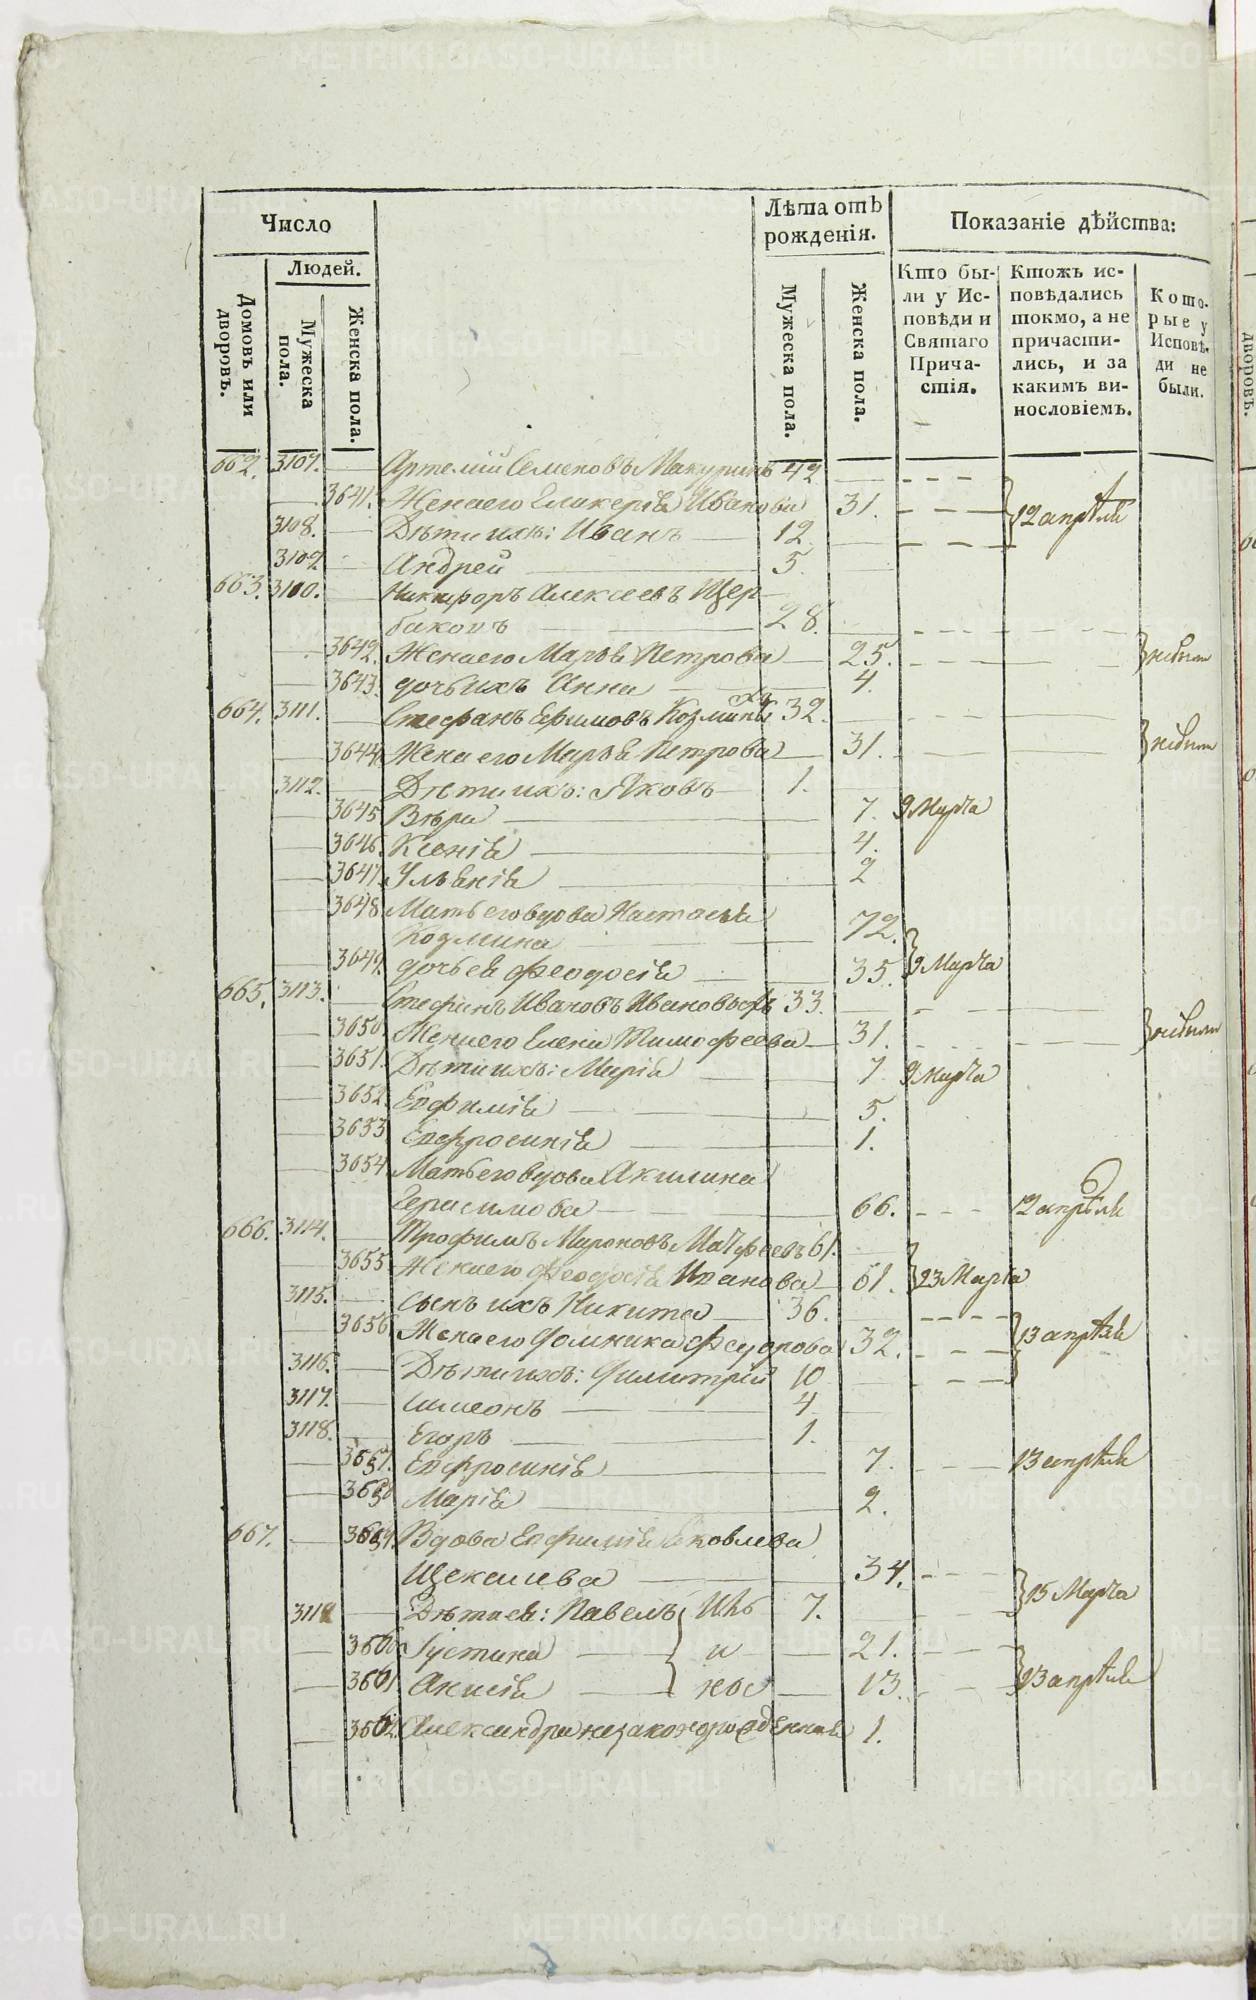 Число
Лѣта отъ рожденія.
Показаніе дѣйства:
Людей.
Домовъ или дворовъ.
Мужеска пола.
Женска пола.
Мужеска пола.
Женска пола.
Кто бы-
ли у Ис-
повѣди и
Святаго
Прича-
стія.
Ктожъ ис-
повѣдались
токмо, а не
причасти-
лись, и за
какимъ ви-
нословіемъ.
Кото-
рые у
Исповѣ-
ди не
были.
662. 3107. Артемій Семеновъ Макуринъ 42
3641. Жена его Гликерія Иванова 31. 12 апрѣля
3108. Дѣти ихъ: Иванъ 12
3109 Андрей 5.
663. 3110. Никифоръ Алексеевъ Щер-
баковъ 28.
3642. Жена его Марѳа Петрова 25. небыли
3643. дочь ихъ Анна 4.
664. 3111. Стефанъ Ефимовъ Козминыхъ 32.
3644 Жена его Марѳа Петрова 31. небыли
3112. Дѣти ихъ: Яковъ 1.
3645 Вѣра 7. 9 Марта
3646. Ксенія 4.
3647 Ульянія 2
3648 Мать его вдова Настасья
Козмина 72.
3649. дочь ея Феодосія 35. 9 Марта
665. 3113. Стефанъ Ивановъ Ивановыхъ 33.
3650. Жена его Елена Тимофеева 31. небыли
3651. Дѣти ихъ: Марія 7 9 Марта
3652. Евфимія 5.
3653 Евфросинія 1.
3654 Мать его вдова Акилина
Герасимова 66. 12 апрѣля
666. 3114. Трофимъ Мироновъ Матфеевъ 61.
3655 Жена его Феодосія Иванова 61. 23 Марта
3115. сынъ ихъ Никита 36.
3656. Жена его Домника Федорова 32. 13 апрѣля
3116. Дѣти ихъ: Димитрій 10
3117. Симеонъ 4
3118. Егоръ 1.
3657. Евфросинія 7. 13 апрѣля
3658 Марія 2.
667. 3659. Вдова Евфимія Яковлева
Щекалева 34. 25 Марта
3119 Дѣти ея: Павелъ 7.
3660 Іустина 21.
3661. Анисія 13. 13 апрѣля
3662. Александра незаконорожденная 1.
METRIKI.GASO-URAL.RU